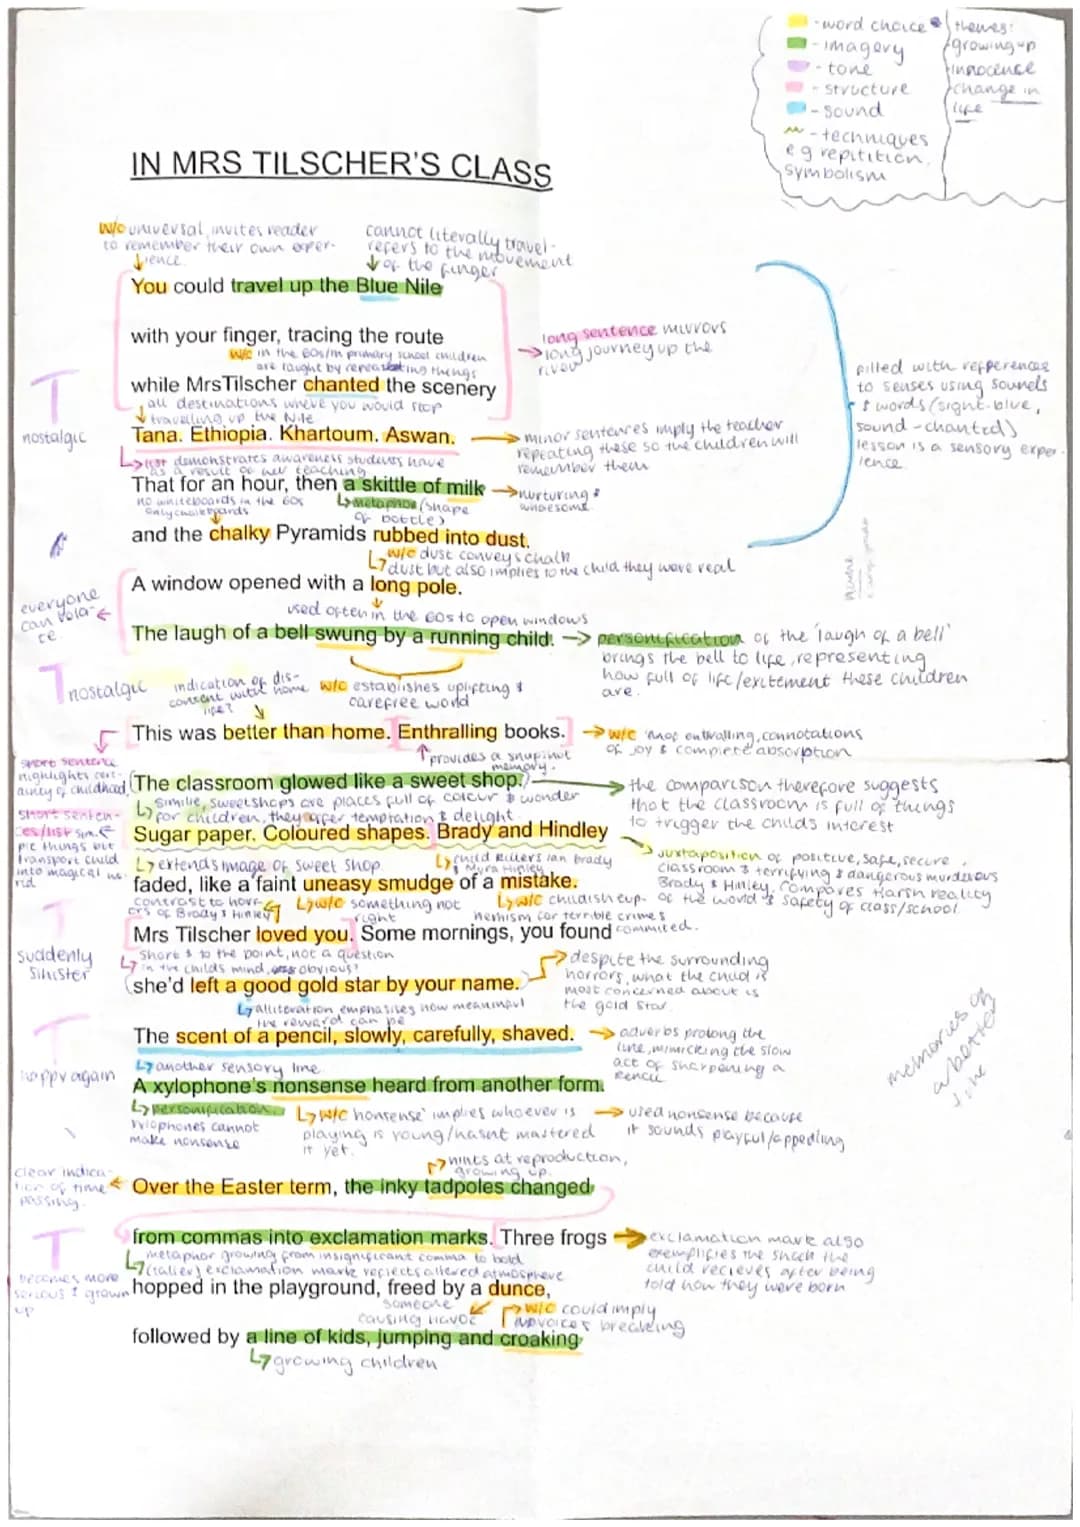 -word choice
-imagery
-tone
-structure
-sound
-techniques
eg repitition,
symbolism
themes:
growing up
innocense
change in
life
IN MRS TILSCHER'S CLASS
W/c universal, invites reader
to remember their own exper-
ience.
cannot literally travel-
refers to the movement
of the finger
You could travel up the Blue Nile
with your finger, tracing the route
long sentence mirrors
long journey up the
river
W/c in the 60s/m primary school children
are taught by repeating things
while MrsTilscher chanted the scenery
all destinations where you would stop
travelling up the Nile
T
nostalgic
Tana. Ethiopia. Khartoum. Aswan.
minor sentences imply the teacher
repeating these so the children will
remember them
list demonstrates awareness students have
as a result of her teaching
filled with refperences
to senses using sounds
& words (sight-blue,
sound-chanted)
lesson is a sensory exper-
ience
That for an hour, then a skittle of milk
nurturing &
wholesome
no whiteboards in the 60s
only chalkboards
metaphor (shape
of bottle)
and the chalky Pyramids rubbed into dust.
W/c dust conveys chalk
dust but also implies to the child they were real
A window opened with a long pole.
used often in the 60s to open windows
everyone
can rela-
te.
The laugh of a bell swung by a running child.
personification of the 'laugh of a bell'
brings the bell to life, representing
how full of life/exitement these children
are.
T
nostalgic
indication of dis-
content with home
life?
W/c establishes uplifting &
carefree world
This was better than home. Enthralling books.
W/c enthralling, connotations
of joy & complete absorption
provides a snapshot
memory.
short sentence
highlights cert-
ainty of childhood
The classroom glowed like a sweet shop.
the comparison therefore suggests
that the classroom is full of things
to trigger the childs interest
similie, sweetshops are places full of colour & wonder
for children, they offer temptation & delight.
short senten-
ces/list sim-
ple things but
transport child
into magical
Sugar paper. Coloured shapes. Brady and Hindley
extends image of sweet shop.
child killers Ian Brady
& Myra Hinley
juxtaposition of positive, safe, secure
classroom & terrifying & dangerous murderous
Brady & Hinley. Compares harsh reality
of the world & safety of class/school.
faded, like a faint uneasy smudge of a mistake.
contrast to horr-
ors of Brady & Hinley
W/c something not
right
W/c childish eup-
hemism for terrible crimes
commited.
T
suddenly
sinister
Mrs Tilscher loved you. Some mornings, you found
short & to the point, not a question
in the childs mind, obvious?
she'd left a good gold star by your name.
despite the surrounding
horrors, what the child is
most concerned about is
the gold star
alliteration emphasises how meaningful
the reward can be
T
happy again
The scent of a pencil, slowly, carefully, shaved.
adverbs prolong the
line, mimicking the slow
act of sharpening a
pencil
another sensory line
memories of
a better
time
A xylophone's nonsense heard from another form.
personification
xylophones cannot
make nonsense
W/c 'nonsense' implies whoever is
playing is young/hasnt mastered
it yet.
used nonsense because
it sounds playful/appealing
hints at reproduction,
growing up.
clear indica-
tion of time
passing.
Over the Easter term, the inky tadpoles changed
from commas into exclamation marks. Three frogs
exclamation mark also
exemplifies the shock the
child recieves after being
told how they were born
metaphor growing from insignificant comma to bold
(taller) exclamation mark reflects altered atmosphere
T
becomes more
serious & grown
up
hopped in the playground, freed by a dunce,
someone
causing havoc
W/c could imply
voices breaking
followed by a line of kids, jumping and croaking
growing children